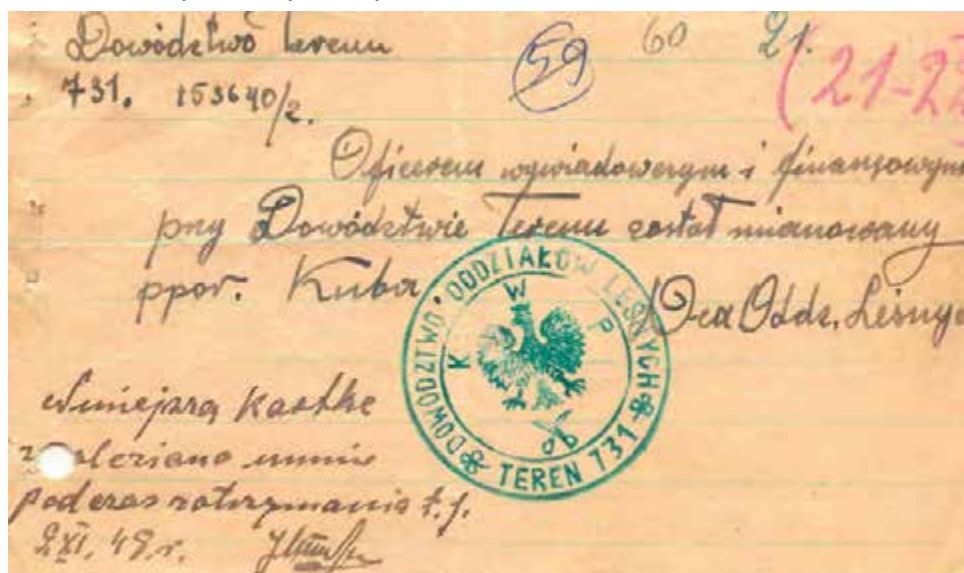 Dowództwo terenu 59 60 21.
731. 153640/2. (21-22
Oficerem wywiadowczym i finansowym
przy Dowództwie terenu został mianowany
ppor. Kuba.
D-ca Oddz. Leśnych
DOWÓDZTWO ODDZIAŁÓW LEŚNYCH
K W P
TEREN 731
Niniejszą kartkę
znaleziono u mnie
podczas zatrzymania t.j.
2.XI.49.r.